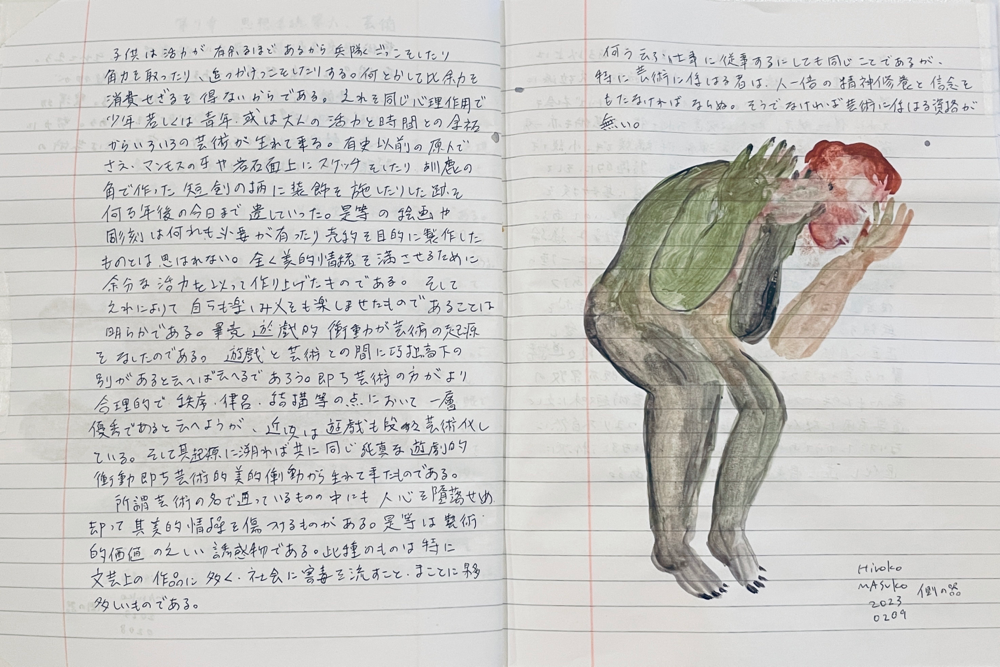 子供は活力が有余るほどあるから兵隊ごっこをしたり
角力を取ったり、追っかけっこをしたりする。何とかして此余力を
消費せざるを得ないからである。それと同じ心理作用で
少年、若しくは青年、或は大人の活力と時間との余裕
からいろいろの芸術が生れて来る。有史以前の原人で
さえ、マンモスの牙や岩石面上にスケッチをしたり馴鹿の
角で作った短剣の柄に装飾を施したりした跡を
何万年後の今日まで遺していった。是等の絵画や
彫刻は何れも必要が有ったり売約を目的に製作した
ものとは思はれない。全く美的情操を満させるために
余分な活力を以って作り上げたものである。そして
それによって自らも楽しみ人をも楽しませたものであることは
明らかである。畢竟遊戯的衝動が芸術の起源
をなしたのである。遊戯と芸術との間に巧拙高下の
別があると云へば云へるであろう。即ち芸術の方がより
合理的で秩序、律呂、結構等の点において一層
優秀であると云へようが、近頃は遊戯も段々芸術化し
ている。そして其起源に溯れば共に同じ純真な遊戯的
衝動即ち芸術的美的衝動から生れて来たものである。
所謂芸術の名で通っているものの中にも人心を堕落せしめ
却って其美的情操を傷つけるものがある。是等は芸術
的価値の乏しい誘惑物である。此種のものは特に
文芸上の作品に多く、社会に害毒を流すこと、まことに夥
多しいものである。
何う云う仕事に従事するにしても同じことであるが、
特に芸術に係はる者は、人一倍の精神修養と信念を
もたなければならぬ。そうでなければ芸術に係はる資格が
無い。
Hiroko
MASUKO
2023
0209